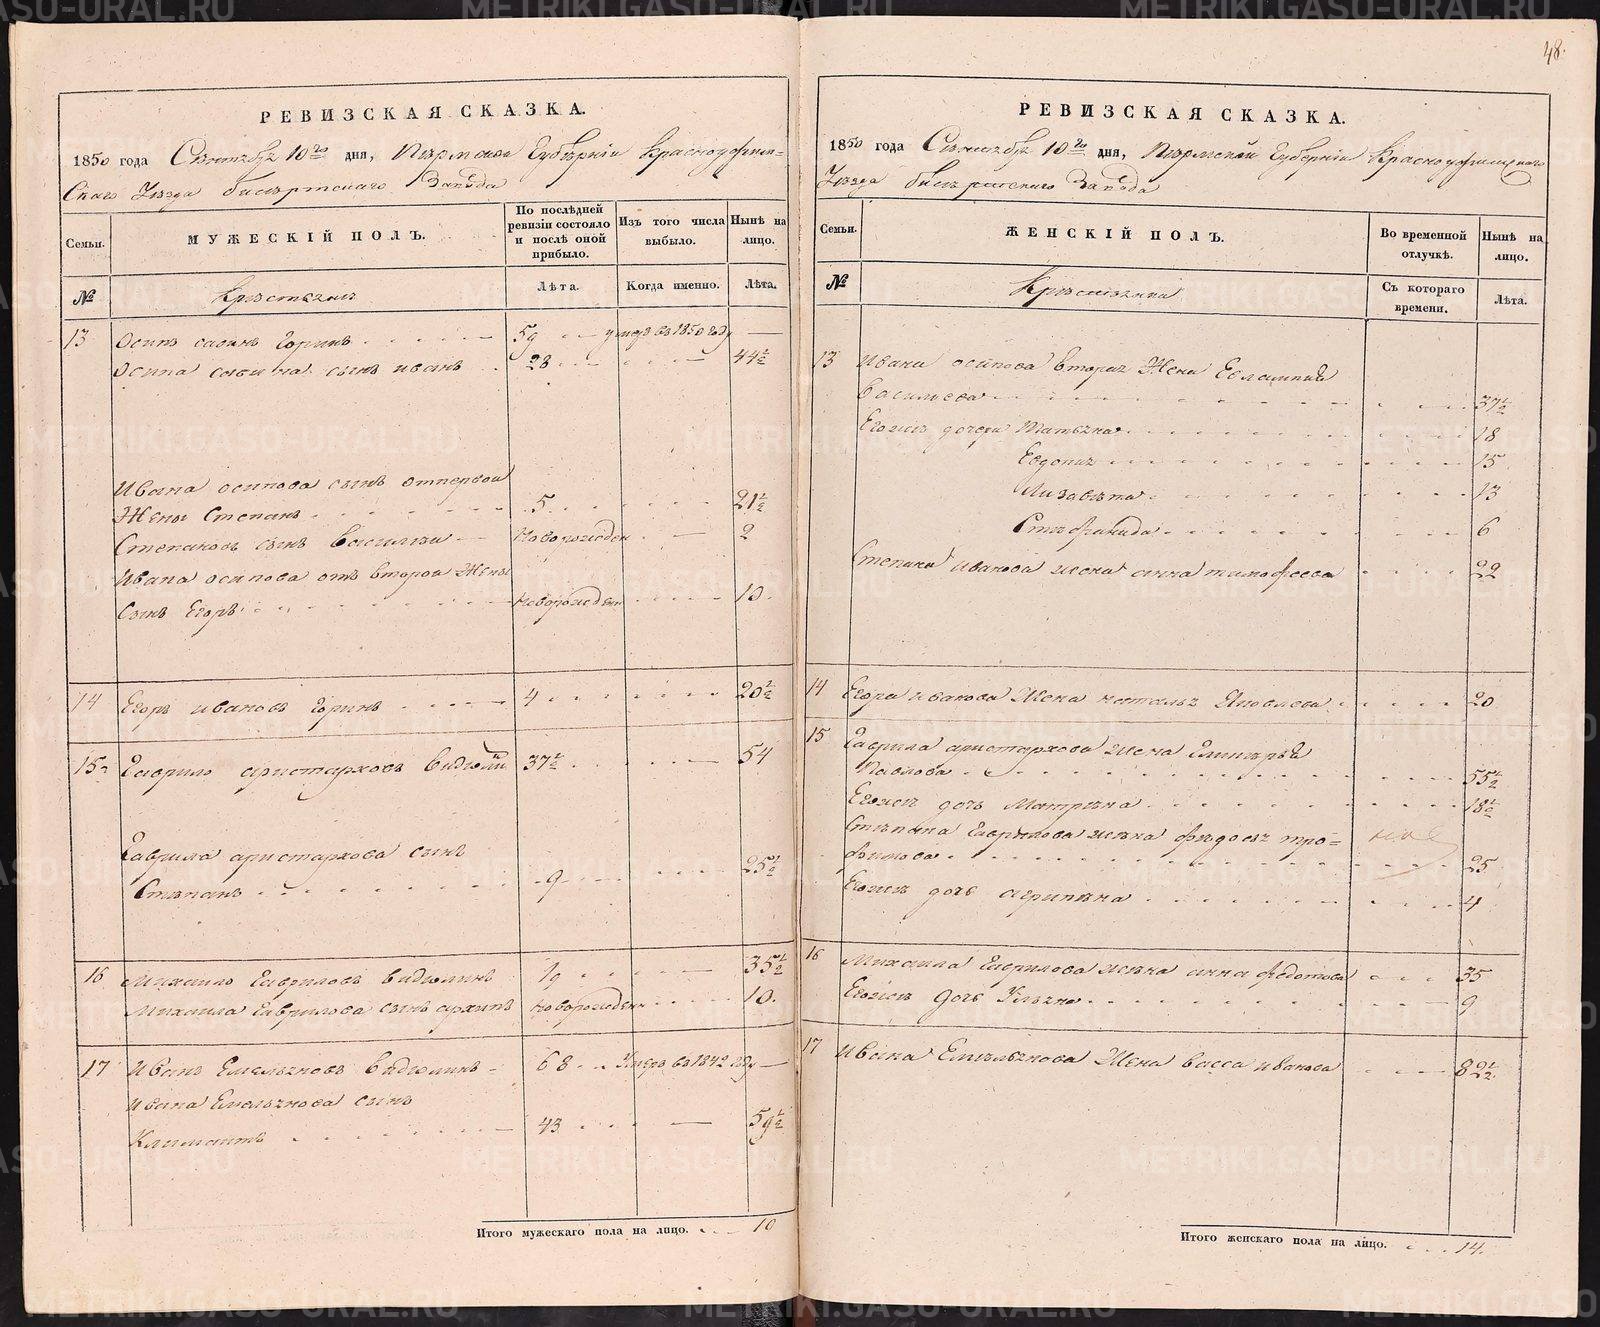 РЕВИЗСКАЯ СКАЗКА.
1850 года Сентября 10го дня, Пермской Губернии Красноуфим-
скаго Уезда Бисертскаго Завода
Семьи.
МУЖЕСКІЙ ПОЛЪ.
По послѣдней ревизіи состояло и послѣ оной прибыло.
Изъ того числа выбыло.
Нынѣ на лицо.
№
Крестьянъ
Лѣта.
Когда именно.
Лѣта.
13 Осипъ Савинъ Горинъ 59 умеръ въ 1850 году
Осипа Савина сынъ Иванъ 28 44½
Ивана Осипова сынъ отпервой
Жены Степанъ 5 21½
Степановъ сынъ Василей Новорожден 2
Ивана Осипова отъ второй Жены
сынъ Егоръ Новорожден 10
14 Егоръ Ивановъ Горинъ 4 20½
15 Гаврило Аристарховъ 37½ 54
Гаврила Аристархова сынъ
Степанъ 9 25½
16 Михаило Гавриловъ 19 35½
Михаила Гаврилова сынъ Архипъ Новорожден 10
17 Иванъ Емельяновъ 68 Умеръ въ 1842 году
Ивана Емельянова сынъ
Климантъ 43 59½
Итого мужескаго пола на лицо. 10
48.
РЕВИЗСКАЯ СКАЗКА.
1850 года Сентября 10го дня, Пермской Губернии Красноуфимскаго
Уезда Бисертскаго Завода
Семьи.
ЖЕНСКІЙ ПОЛЪ.
Во временной отлучкѣ.
Нынѣ на лицо.
№
Крестьянки
Съ котораго времени.
Лѣта.
13 Ивана Осипова вторая Жена Евлампия
Васильева 37½
Егожъ дочери Татьяна 18
Евдокия 15
Лизавета 13
Стефанида 6
Степана Иванова жена Анна Тимофеева 22
14 Егора Иванова Жена Наталья Яковлева 20
15 Гаврила Аристархова жена Гликерия
Павлова 55½
Егожъ дочь Матрена 18½
Степана Гаврилова жена Федосья Тро-
фимова 25
Егожъ дочь Агрипена 4
16 Михаила Гаврилова жена Анна Федотова 35
Егожъ дочь Ульяна 9
17 Ивана Емельянова Жена Васса Иванова 82½
Итого женскаго пола на лицо. 14.
METRIKI.GASO-URAL.RU